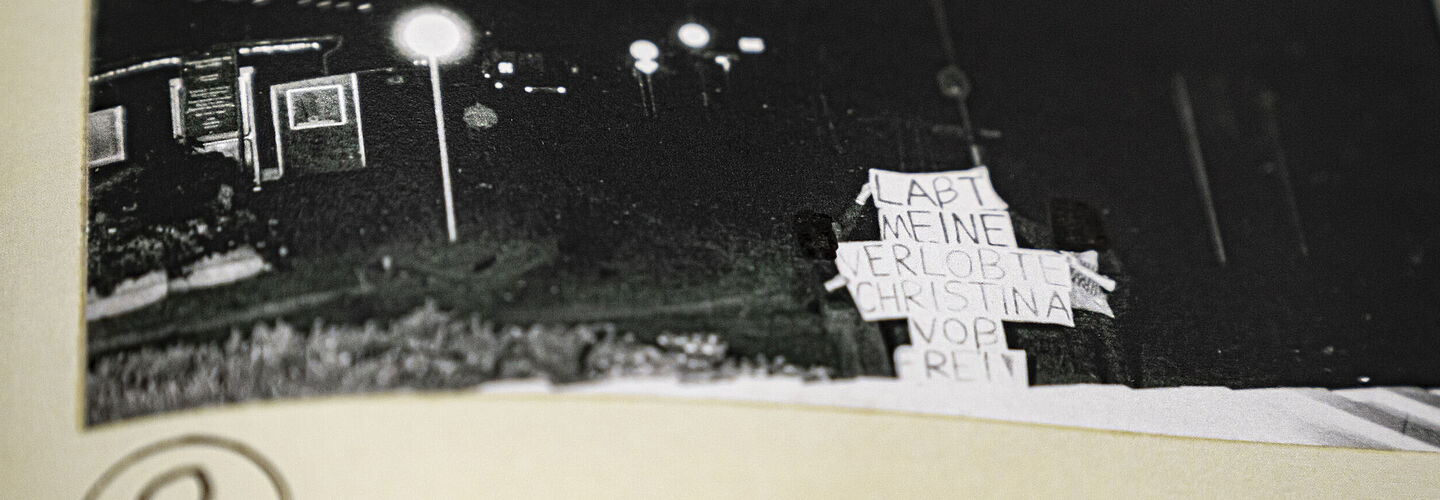 LAßT
MEINE
VERLOBTE
CHRISTINA
VOß
FREI!